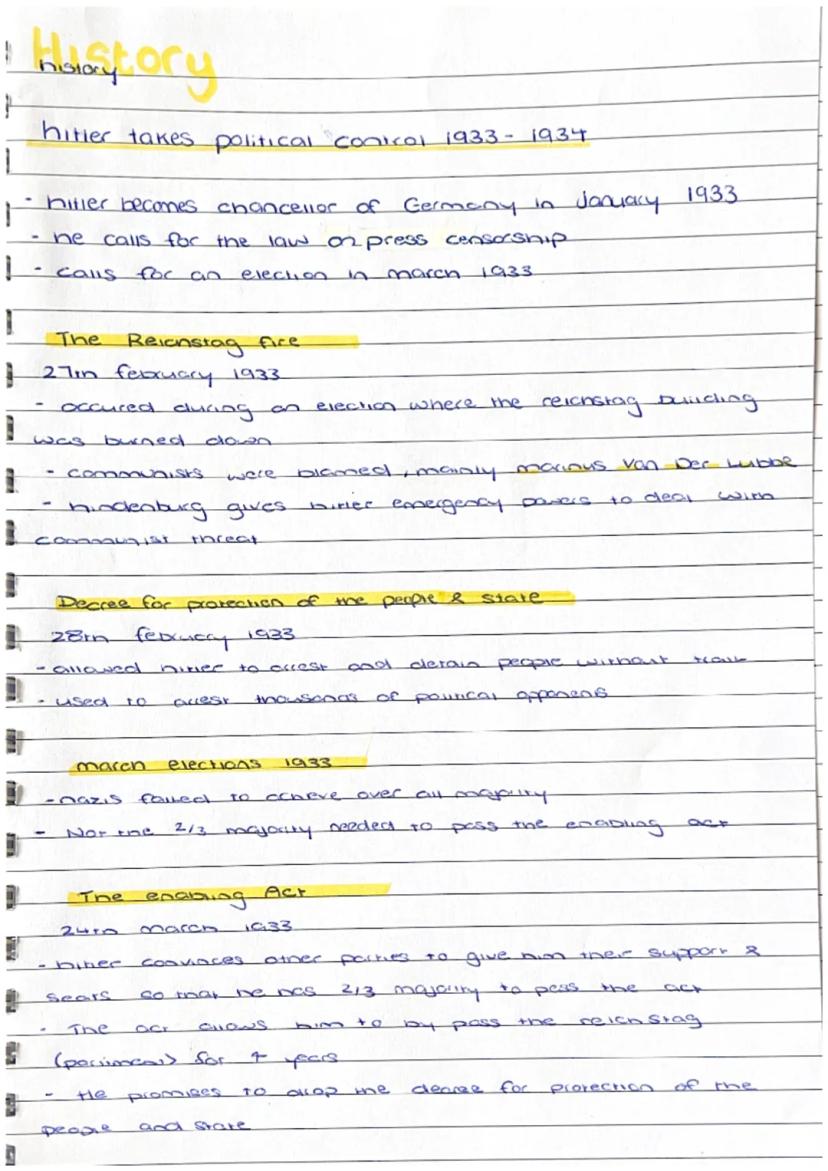 History
history
hitler takes political control 1933 - 1934
- hitler becomes chancellor of Germany in January 1933
- he calls for the law on press censorship
- calls for an election in march 1933
The Reichstag fire
27th february 1933
- occured during an election where the reichstag building
was burned down
- communists were blamed, mainly marinus Van Der Lubbe
- hindenburg gives hitler emergency powers to deal with
communist threat
Decree for protection of the people & state
28th february 1933
- allowed hitler to arrest and detain people without
- used to arrest thousands of political opponents
march elections 1933
- nazis failed to achieve over all majority
- Not the 2/3 majority needed to pass the enabling act
The enabling Act
24th march 1933
- hitler convinces other parties to give him their support &
seats so that he has 2/3 majority to pass the act
- The act allows him to by pass the reichstag
for 4 years
- He promises to drop the decree for protection of the
people and state